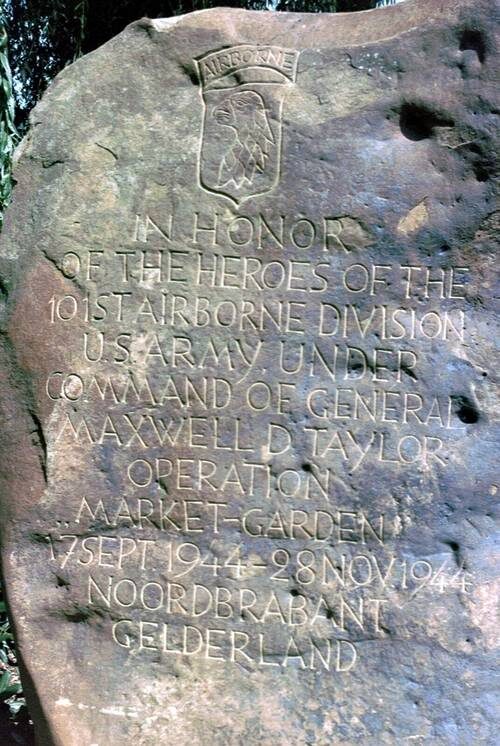 AIRBORNE
IN HONOR
OF THE HEROES OF THE
101ST AIRBORNE DIVISION
U.S. ARMY. UNDER
COMMAND OF GENERAL
MAXWELL D. TAYLOR
OPERATION
„MARKET-GARDEN"
17 SEPT. 1944-28 NOV. 1944
NOORDBRABANT
GELDERLAND